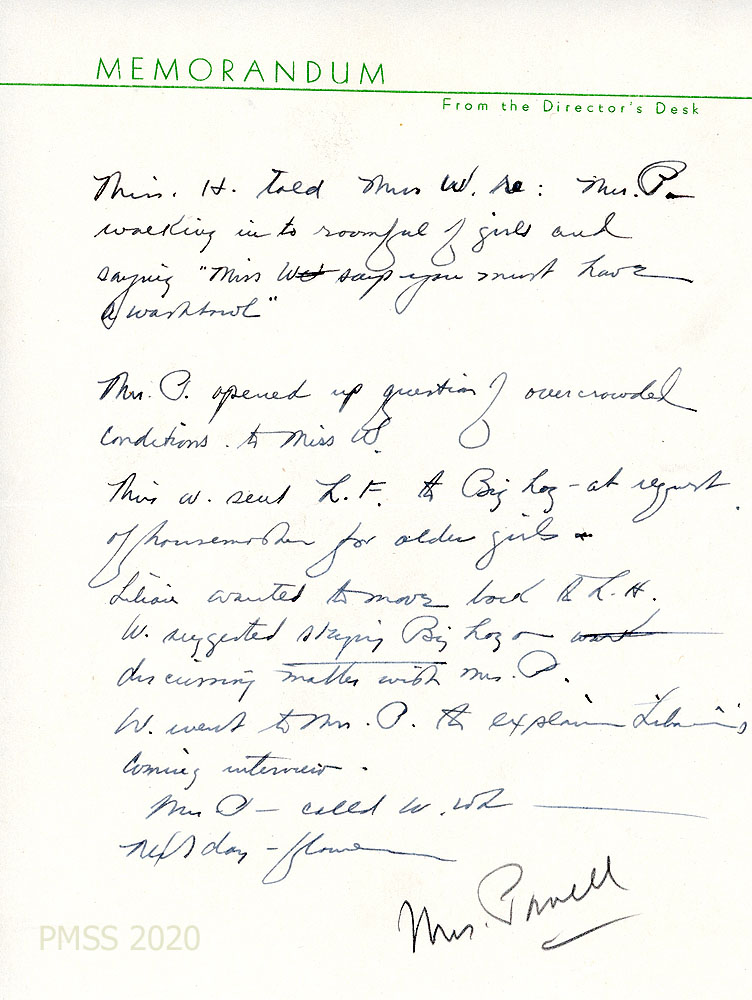 MEMORANDUM
From the Director's Desk
Miss. H. told Miss W. re: Mrs. P—
walking in to roomful of girls and
saying "Miss W says you must have
a washbowl"
Mrs. P. opened up question of overcrowded
conditions. to Miss W.
Miss W. sent L. F. to Big Log - at request
of housemother for older girls -
Lilian wanted to move back to L. H.
W. suggested staying Big Log or
discussing matter with Mrs. P.
W. went to Mrs. P. to explain Lilian's
coming interview.
Mrs P — called W.
next day -
Mrs. Powell
PMSS 2020